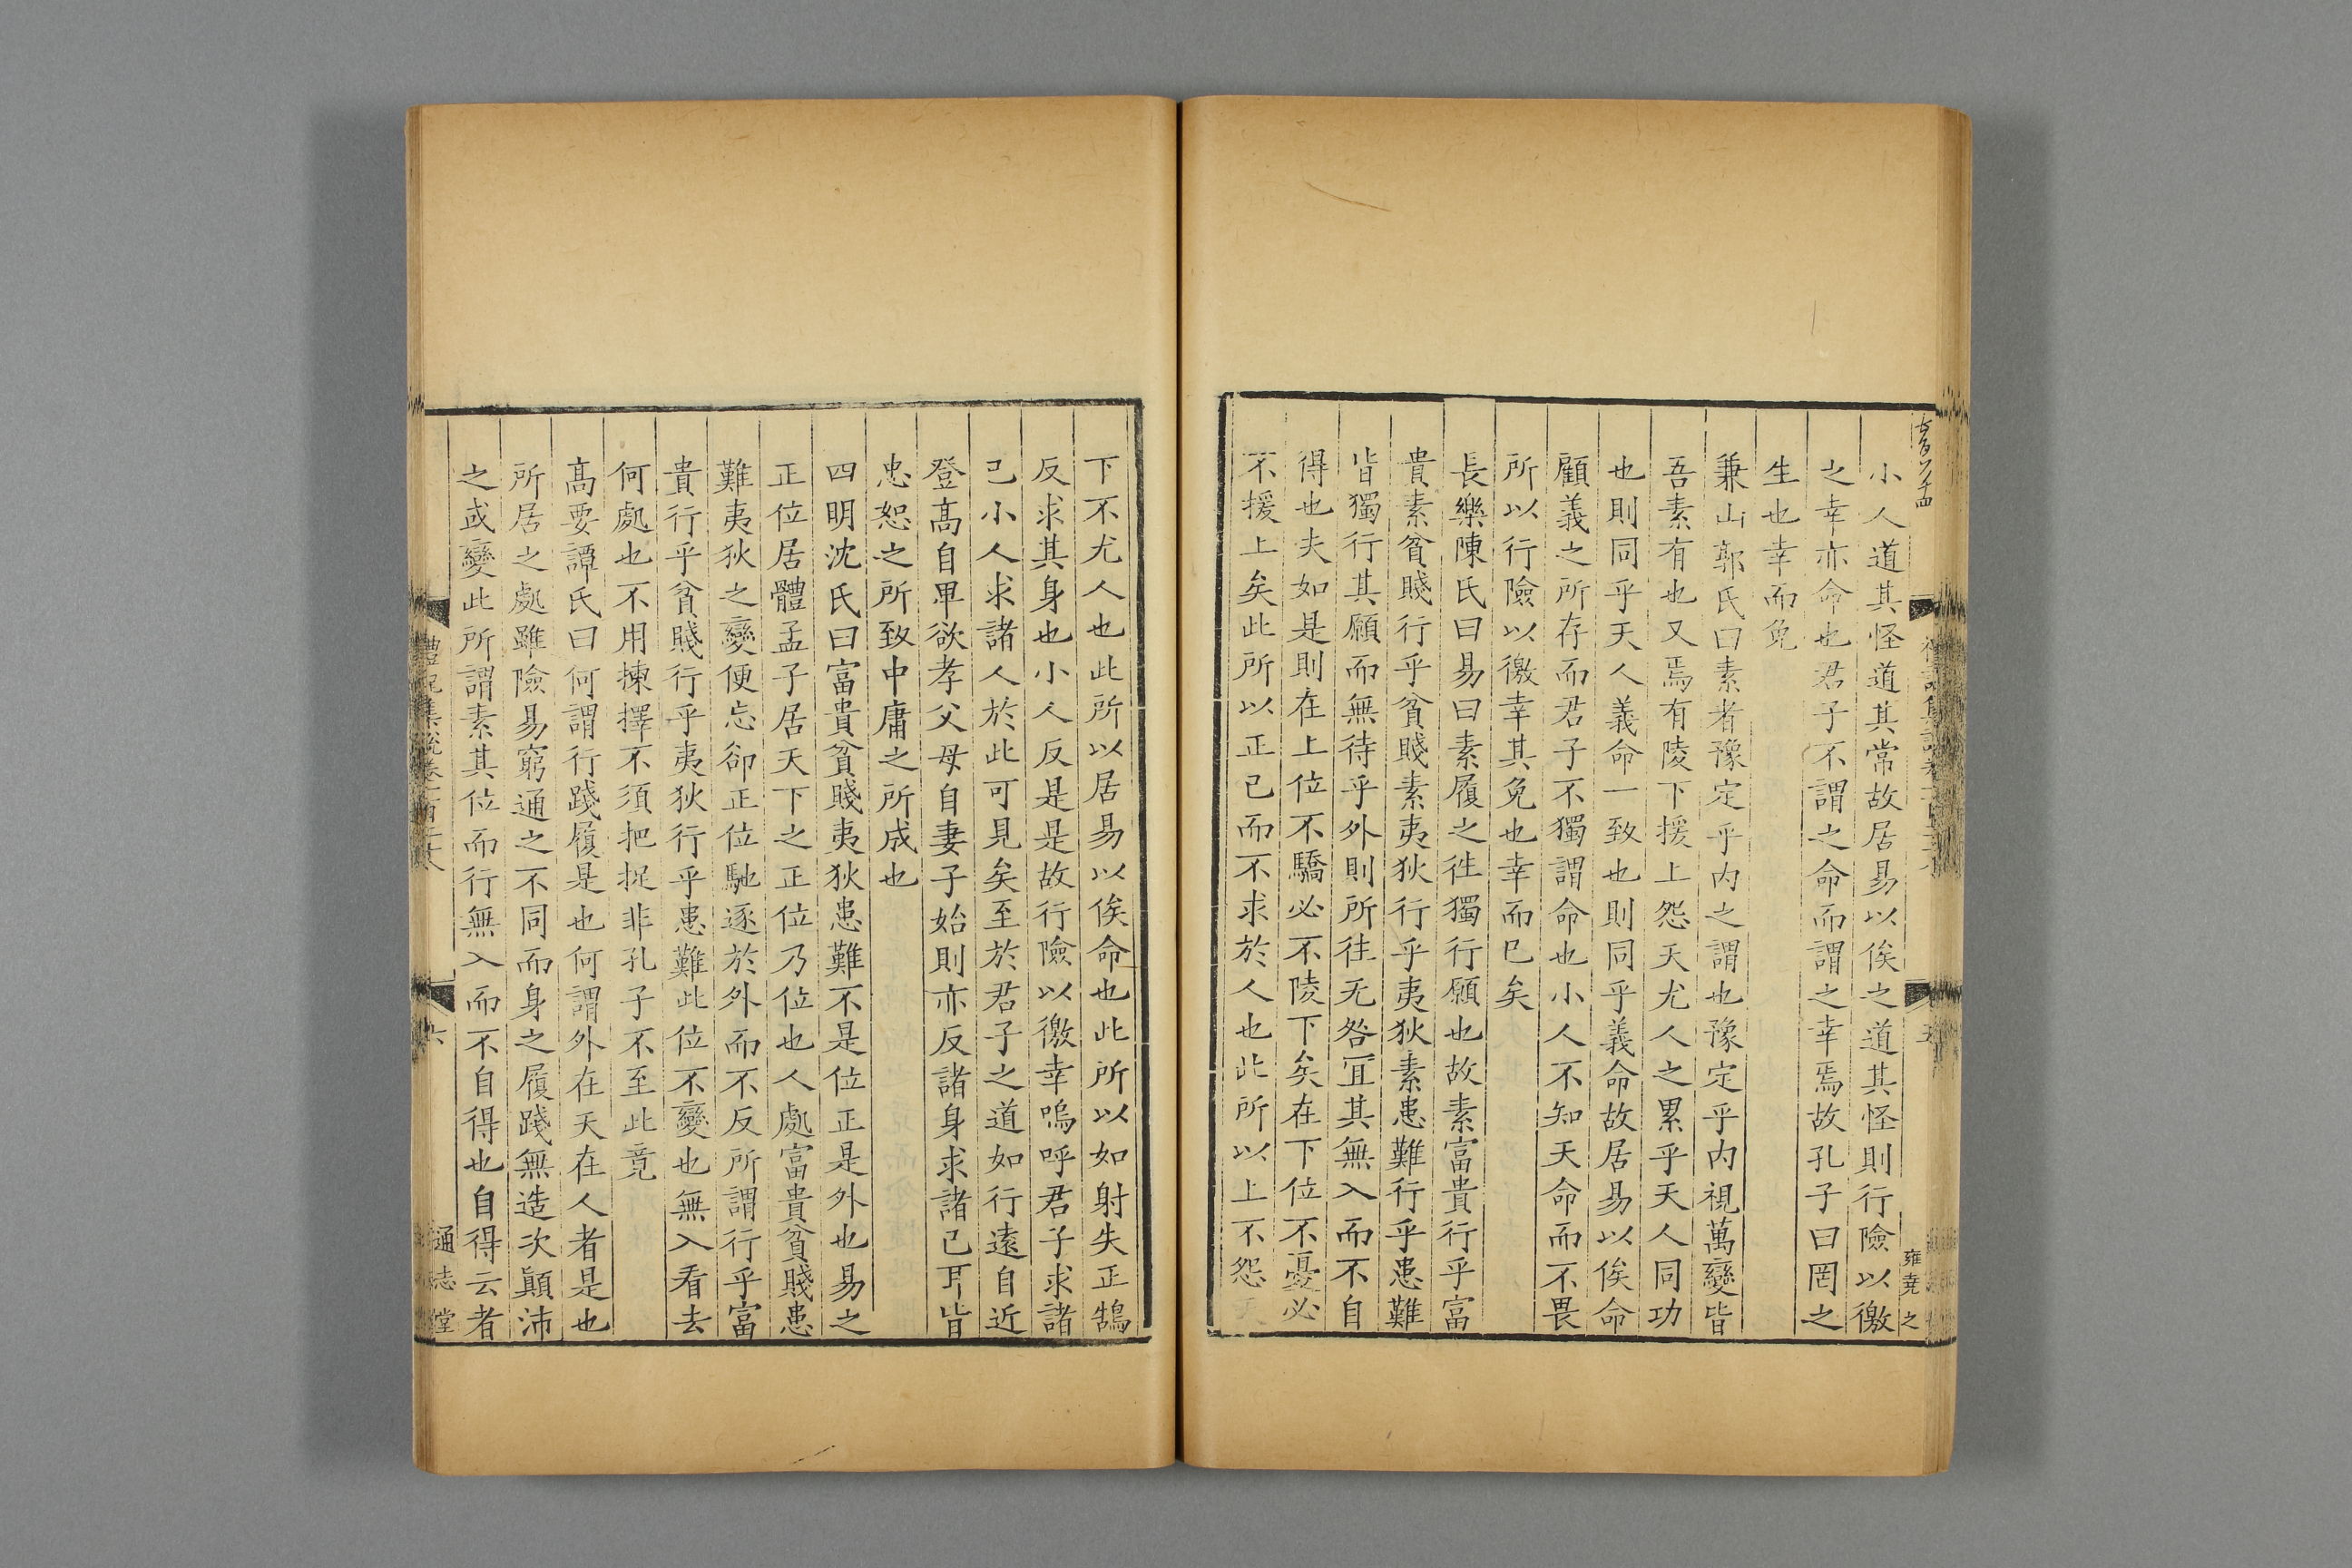 小人道其怪道其常故居易以俟之道其怪則行險以徼
之幸亦命也君子不謂之命而謂之幸焉故孔子曰罔之
生也幸而免
兼山郭氏曰素者豫定乎内之謂也豫定乎内視萬變皆
吾素有也又焉有陵下援上怨天尤人之累乎天人同功
也則同乎天人義命一致也則同乎義命故居易以俟命
顧義之所存而君子不獨謂命也小人不知天命而不畏
所以行險以徼幸其免也幸而已矣
長樂陳氏曰易曰素履之徃獨行願也故素富貴行乎富
貴素貧賤行乎貧賤素夷狄行乎夷狄素患難行乎患難
皆獨行其願而無待乎外則所徃无咎冝其無入而不自
得也夫如是則在上位不驕必不陵下矣在下位不憂必
不援上矣此所以正己而不求於人也此所以上不怨天
下不尤人也此所以居易以俟命也此所以如射失正鵠
反求其身也小人反是是故行險以徼幸嗚呼君子求諸
己小人求諸人於此可見矣至於君子之道如行遠自近
登髙自卑欲孝父母自妻子始則亦反諸身求諸己耳皆
忠恕之所致中庸之所成也
四明沈氏曰富貴貧賤夷狄患難不是位正是外也易之
正位居體孟子居天下之正位乃位也人處富貴貧賤患
難夷狄之變便忘卻正位馳逐於外而不反所謂行乎富
貴行乎貧賤行乎夷狄行乎患難此位不變也無入看去
何處也不用揀擇不須把捉非孔子不至此竟
髙要譚氏曰何謂行踐履是也何謂外在天在人者是也
所居之處雖險易窮通之不同而身之履踐無造次顛沛
之或變此所謂素其位而行無入而不自得也自得云者
禮記集說卷一百二十八
六
通志堂